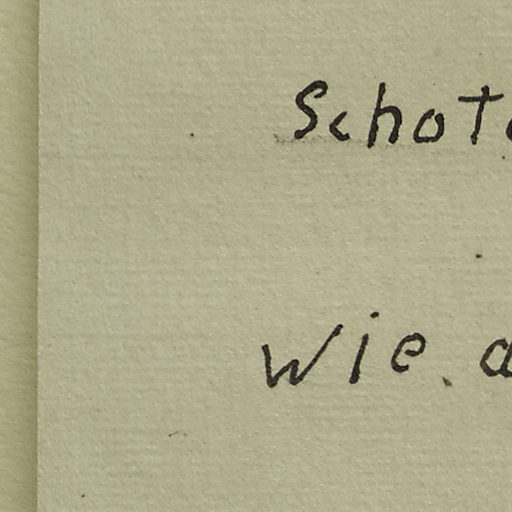 Schot
wie